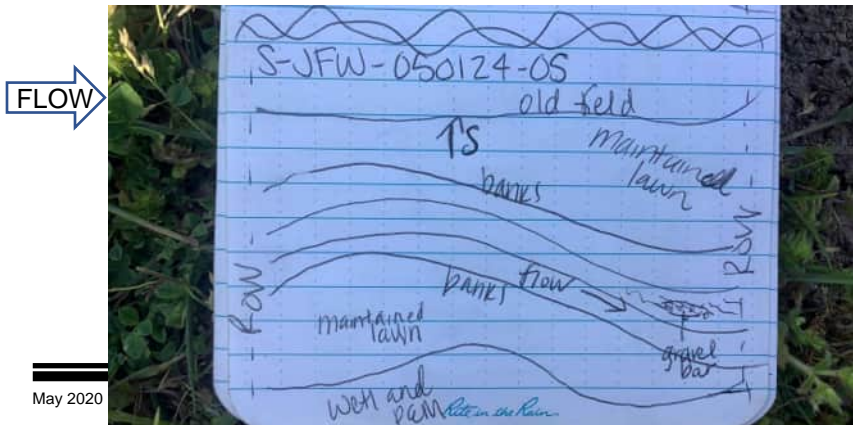 S-JFW-050124-05
old field
↑S
maintained
lawn
banks
ROW
ROW
FLOW
banks flow
maintained
lawn
gravel
bar
wetland
PEM
Rite in the Rain
May 2020